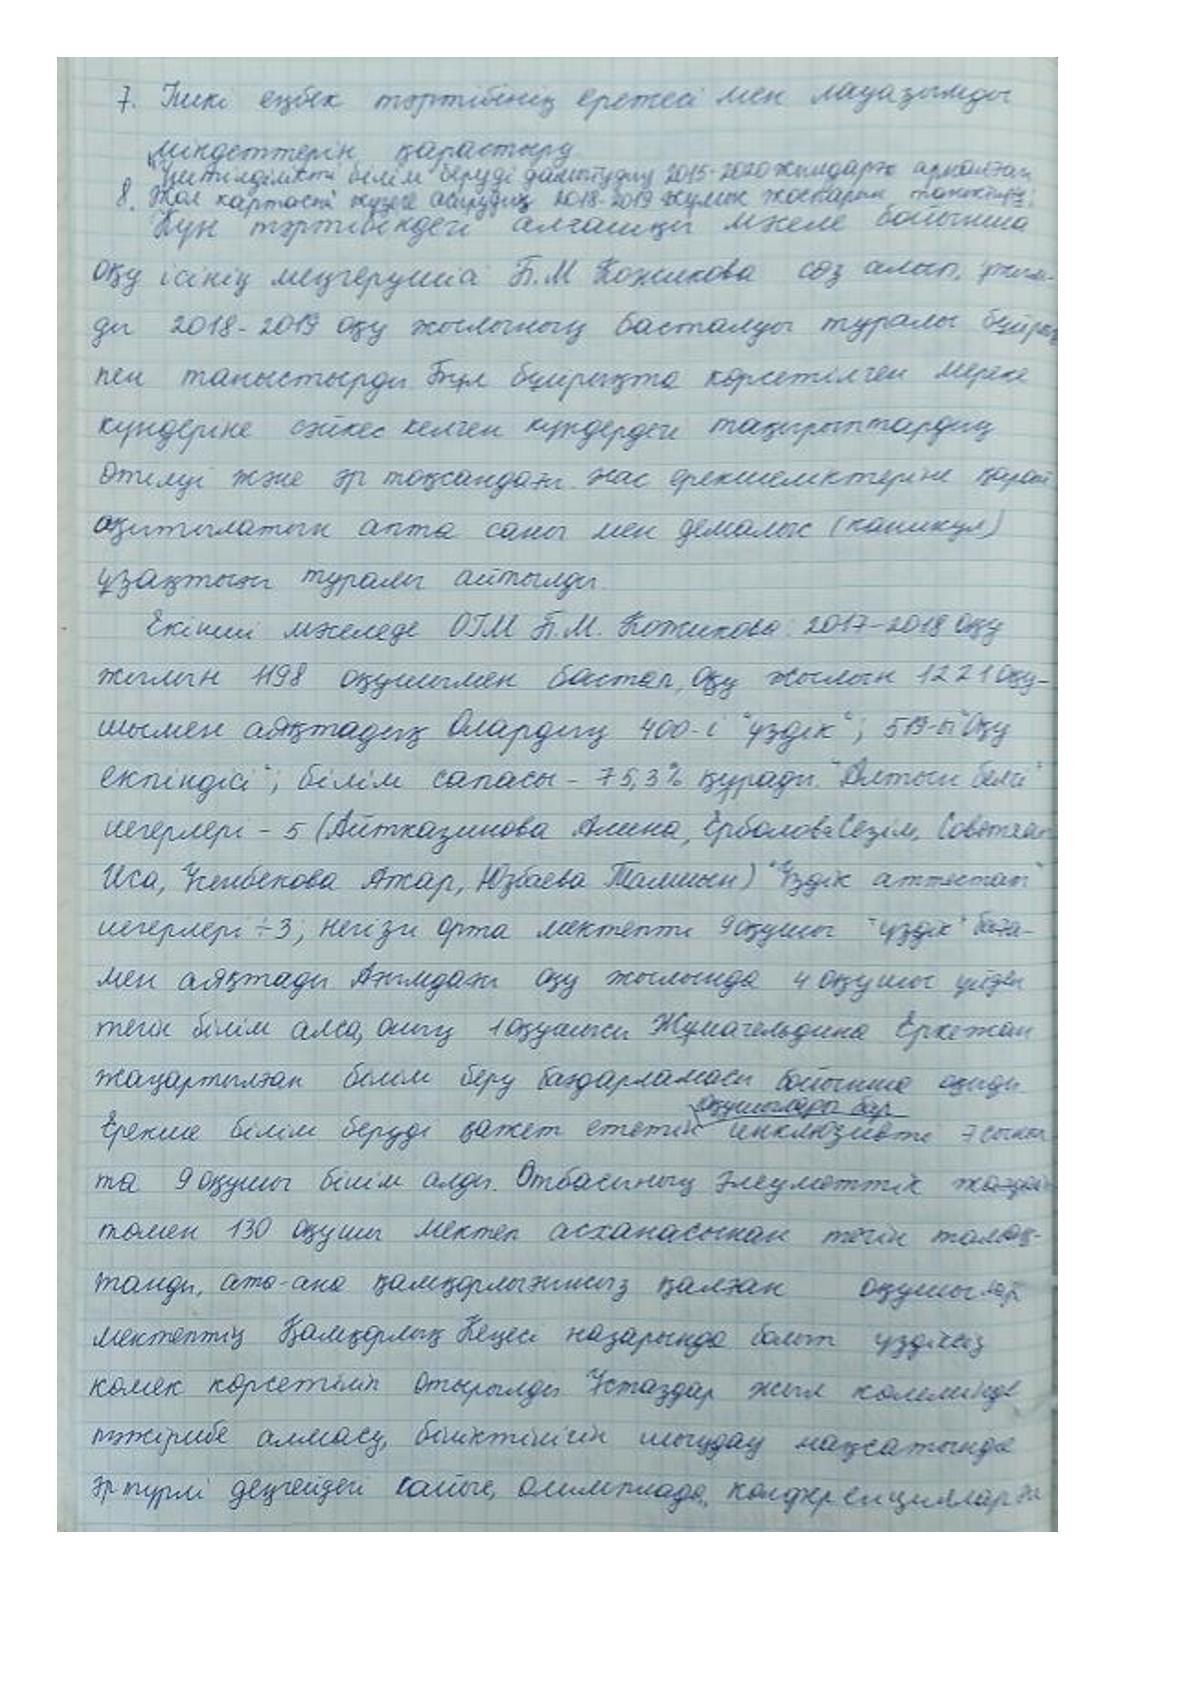 7. Ішкі еңбек тәртібінің ережесі мен лауазымды
міндеттерін қарастыру
"Үштілділікті білім беруді дамытудың 2015-2020 жылдарға арналған
8. Жол картасы" жүзеге асырудың 2018-2019 жұмыс жоспарын таныстыру.
Күн тәртібіндегі алғашқы мәселе бойынша
оқу ісінің меңгерушісі Б.М Кожикова сөз алып, ұжым-
ды 2018-2019 оқу жылының басталуы туралы бұйрық
пен таныстырды Бұл бұйрықта көрсетілген мереке
күндеріне сәйкес келген күндердегі тақырыптардың
өтілуі және әр тоқсандағы жас ерекшеліктеріне қарай
оқытылатын апта саны мен демалыс (каникул)
ұзақтығы туралы айтылды.
Екінші мәселеде ОІМ Б.М. Кожикова: 2017-2018 оқу
жылын 1198 оқушымен бастап, оқу жылын 1221 оқу-
шымен аяқтадық Олардың 400-і "үздік"; 519-ы "Оқу
екпіндісі"; білім сапасы - 75,3% құрады. "Алтын белгі"
иегерлері - 5 (Айтказинова Алина, Ерболова Сезім, Советхан
Иса, Кенбекова Ажар, Юзбаева Талшын) "Үздік аттестат"
иегерлері - 3; негізгі орта мектепті 9 оқушы "үздік" баға-
мен аяқтады Ағымдағы оқу жылында 4 оқушы үйден
тегін білім алса, оның 1 оқушысы Жумагельдина Еркежан
жаңартылған білім беру бағдарламасы бойынша оқиды
оқушылары бар
Ерекше білім беруді қажет ететін инклюзивті 7 сынып
та 9 оқушы білім алды. Отбасының әлеуметтік жағдайы
төмен 130 оқушы мектеп асханасынан тегін тамақ-
танды, ата-ана қамқорлығынсыз қалған оқушылар
мектептің Қамқорлық Кеңесі назарында болып үздіксіз
көмек көрсетіліп отырылды Ұстаздар жыл көлемінде
тәжірибе алмасу, біліктілігін шыңдау мақсатында
әр түрлі деңгейдегі байқау, олимпиада, конференцияларға